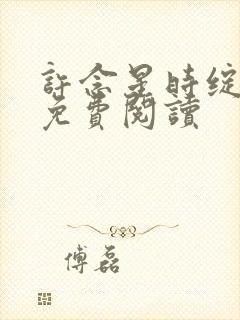 許念星時綻
免費閱讀
傅磊